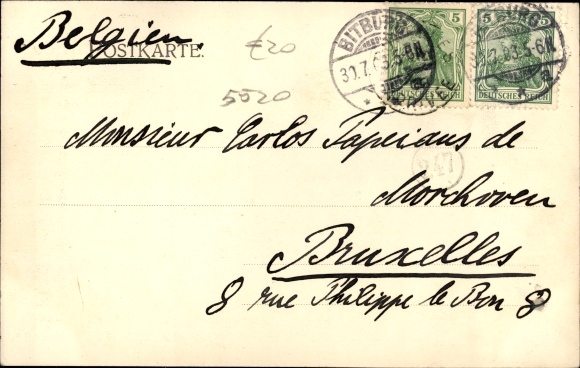 Belgien.
POSTKARTE.
£20
5520
BITBURG
30.7.03.5-6N.
5
DEUTSCHES REICH
5
DEUTSCHES REICH
Monsieur Carlos Papeians de
Morchoven
347
Bruxelles
8 rue Philippe le Bon 8